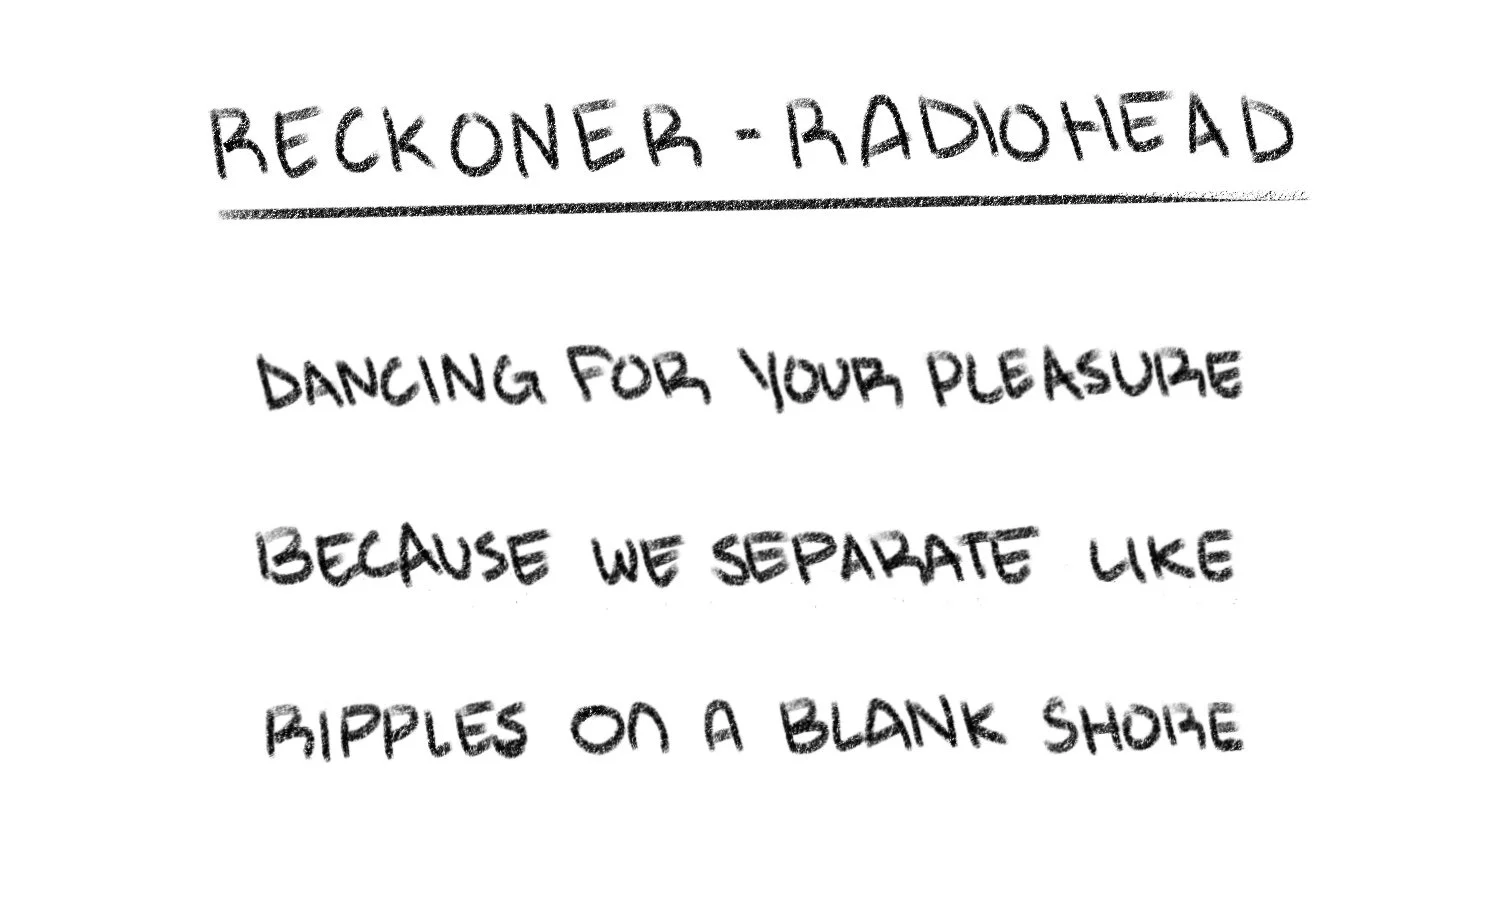 RECKONER - RADIOHEAD
DANCING FOR YOUR PLEASURE
BECAUSE WE SEPARATE LIKE
RIPPLES ON A BLANK SHORE